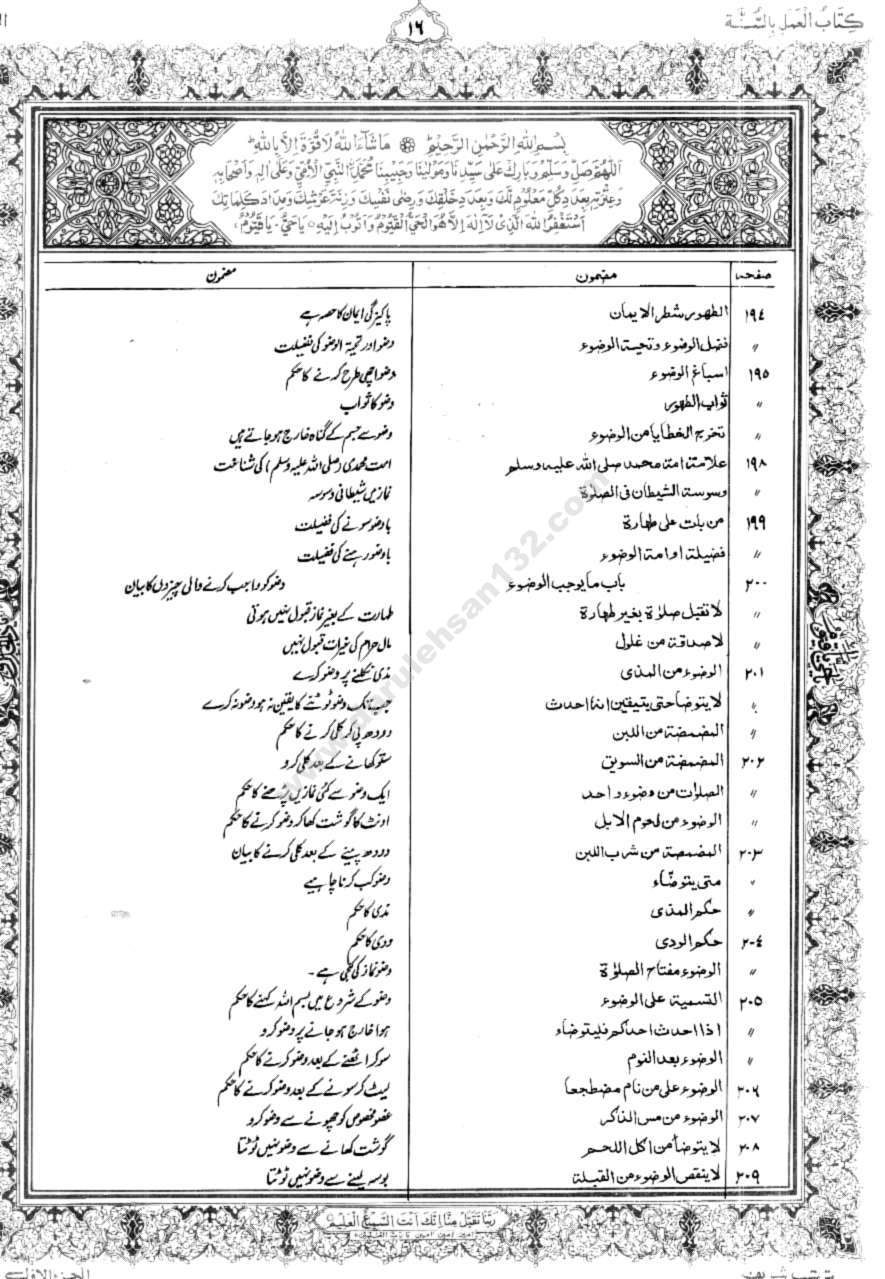 كِتَابُ الْعَمَلِ بِالسُّنَّة
١٦
بِسْمِ اللهِ الرَّحْمٰنِ الرَّحِيْمِ مَا شَآءَ اللهُ لَا قُوَّةَ اِلَّا بِاللهِ
اَللّٰهُمَّ صَلِّ وَسَلِّمْ وَبَارِكْ عَلٰى سَيِّدِنَا وَمَوْلٰنَا وَحَبِيْبِنَا مُحَمَّدِ النَّبِيِّ الْاُمِّيِّ وَعَلٰى اٰلِهٖ وَاَصْحَابِهٖ
وَعِتْرَتِهٖ بِعَدَدِ كُلِّ مَعْلُوْمٍ لَّكَ وَبِعَدَدِ خَلْقِكَ وَرِضٰى نَفْسِكَ وَزِنَةَ عَرْشِكَ وَمِدَادَ كَلِمَاتِكَ
اَسْتَغْفِرُ اللهَ الَّذِيْ لَآ اِلٰهَ اِلَّا هُوَ الْحَيُّ الْقَيُّوْمُ وَاَتُوْبُ اِلَيْهِ يَا حَيُّ يَا قَيُّوْمُ
صفحہ مضمون مضمون
١٩٤ الطهور شطر الايمان پاکیزگی ایمان کا حصہ ہے
〃 فضل الوضوء و تحية الوضوء وضو اور تحیۃ الوضو کی فضیلت
١٩٥ اسباغ الوضوء وضو اچھی طرح کرنے کا حکم
〃 ثواب الطهور وضو کا ثواب
〃 تخرج الخطايا من الوضوء وضو سے جسم کے گناہ خارج ہو جاتے ہیں
١٩٨ علامة امة محمد صلى الله عليه وسلم امت محمدی (صلی اللہ علیہ وسلم) کی شناخت
〃 وسوسة الشيطان فى الصلوٰة نماز میں شیطانی وسوسہ
١٩٩ من بات على طهارة باوضو سونے کی فضیلت
〃 فضيلة ادامة الوضوء باوضو رہنے کی فضیلت
٢٠٠ باب ما يوجب الوضوء وضو کو واجب کرنے والی چیزوں کا بیان
〃 لا تقبل صلوٰة بغير طهارة طہارت کے بغیر نماز قبول نہیں ہوتی
〃 لا صدقة من غلول مال حرام کی خیرات قبول نہیں
٢٠١ الوضوء من المذى مذی نکلنے پر وضو کرے
〃 لا يتوضا حتى يتيقين انه احدث جب تک وضو ٹوٹنے کا یقین نہ ہو وضو نہ کرے
〃 المضمضة من اللبن دودھ پی کر کلی کرنے کا حکم
٢٠٢ المضمضة من السويق ستو کھانے کے بعد کلی کرو
〃 الصلوات من وضوء واحد ایک وضو سے کئی نمازیں پڑھنے کا حکم
〃 الوضوء من لحوم الابل اونٹ کا گوشت کھا کر وضو کرنے کا حکم
٢٠٣ المضمضة من شرب اللبن دودھ پینے کے بعد کلی کرنے کا بیان
〃 متى يتوضّاء وضو کب کرنا چاہیے
〃 حكم المذى مذی کا حکم
٢٠٤ حكم الودى ودی کا حکم
〃 الوضوء مفتاح الصلوٰة وضو نماز کی کنجی ہے۔
٢٠٥ التسمية على الوضوء وضو کے شروع میں بسم اللہ کہنے کا حکم
〃 اذا احدث احدكم فليتوضاء ہوا خارج ہو جانے پر وضو کرو
〃 الوضوء بعد النوم سو کر اٹھنے کے بعد وضو کرنے کا حکم
٢٠٦ الوضوء على من نام مضطجعا لیٹ کر سونے کے بعد وضو کرنے کا حکم
٢٠٧ الوضوء من مس الذكر عضو مخصوص کو چھونے سے وضو کرو
٢٠٨ لا يتوضأ من اكل اللحم گوشت کھانے سے وضو نہیں ٹوٹتا
٢٠٩ لا ينقص الوضوء من القبلة بوسہ لینے سے وضو نہیں ٹوٹتا
رَبَّنَا تَقَبَّلْ مِنَّا اِنَّكَ اَنْتَ السَّمِيْعُ الْعَلِيْمُ
ترتیب شریف
الجزء الاول
www.darulehsan132.com